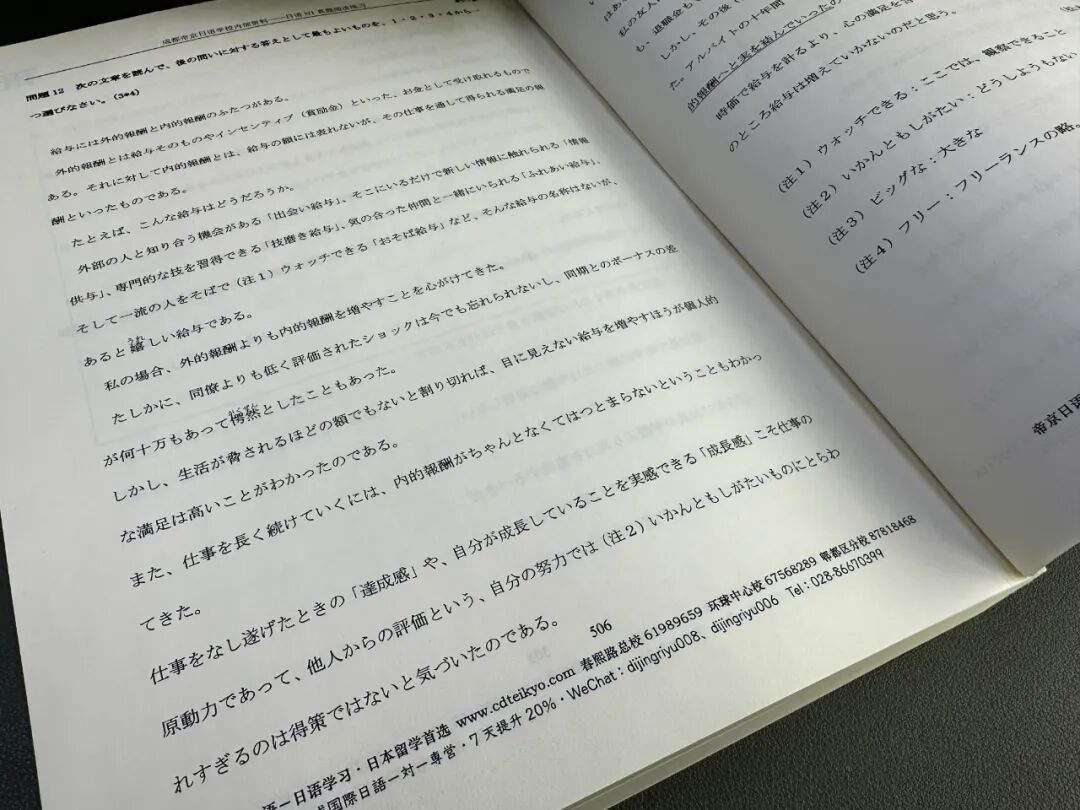 成都帝京日语学校内部资料——日语 N1 真题阅读练习
問題 12 次の文章を読んで、後の問いに対する答えとして最もよいものを、1・2・3・4から
つ選びなさい。(3*4)
給与には外的報酬と内的報酬のふたつがある。
外的報酬とは給与そのものやインセンティブ（賞励金）といった、お金として受け取れるもので
ある。それに対して内的報酬とは、給与の額には表れないが、その仕事を通して得られる満足の報
酬といったものである。
たとえば、こんな給与はどうだろうか。
外部の人と知り合う機会がある「出会い給与」、そこにいるだけで新しい情報に触れられる「情報
供与」、専門的な技を習得できる「技磨き給与」、気の合った仲間と一緒にいられる「ふれあい給与」、
そして一流の人をそばで（注1）ウォッチできる「おそば給与」など、そんな給与の名称はないが、
あると嬉しい給与である。
私の場合、外的報酬よりも内的報酬を増やすことを心がけてきた。
たしかに、同僚よりも低く評価されたショックは今でも忘れられないし、同期とのボーナスの差
が何十万もあって愕然としたこともあった。
しかし、生活が脅されるほどの額でもないと割り切れば、目に見えない給与を増やすほうが個人的
な満足は高いことがわかったのである。
また、仕事を長く続けていくには、内的報酬がちゃんとなくてはつとまらないということもわかっ
てきた。
仕事をなし遂げたときの「達成感」や、自分が成長していることを実感できる「成長感」こそ仕事の
原動力であって、他人からの評価という、自分の努力では（注2）いかんともしがたいものにとらわ
れすぎるのは得策ではないと気づいたのである。
506
语－日语学习・日本留学首选 www.cdteikyo.com 春熙路总校 61989659 环球中心校 67568289 郫都区分校 87818468
国際日語一对一専営・7 天提升 20%・WeChat：dijingriyu008、dijingriyu006 Tel：028-86670399
私の女人
も、退職金も
しかし、その後（
た。アルバイトの十年間
的報酬へと実を結んでいったの
時価で給与を計るより、心の満足を
のところ給与は増えていかないのだと思う。
（注1）ウォッチできる：ここでは、観察できること
（注2）いかんともしがたい：どうしようもない
（注3）ビッグな：大きな
（注4）フリー：フリーランスの略。
帝京日语